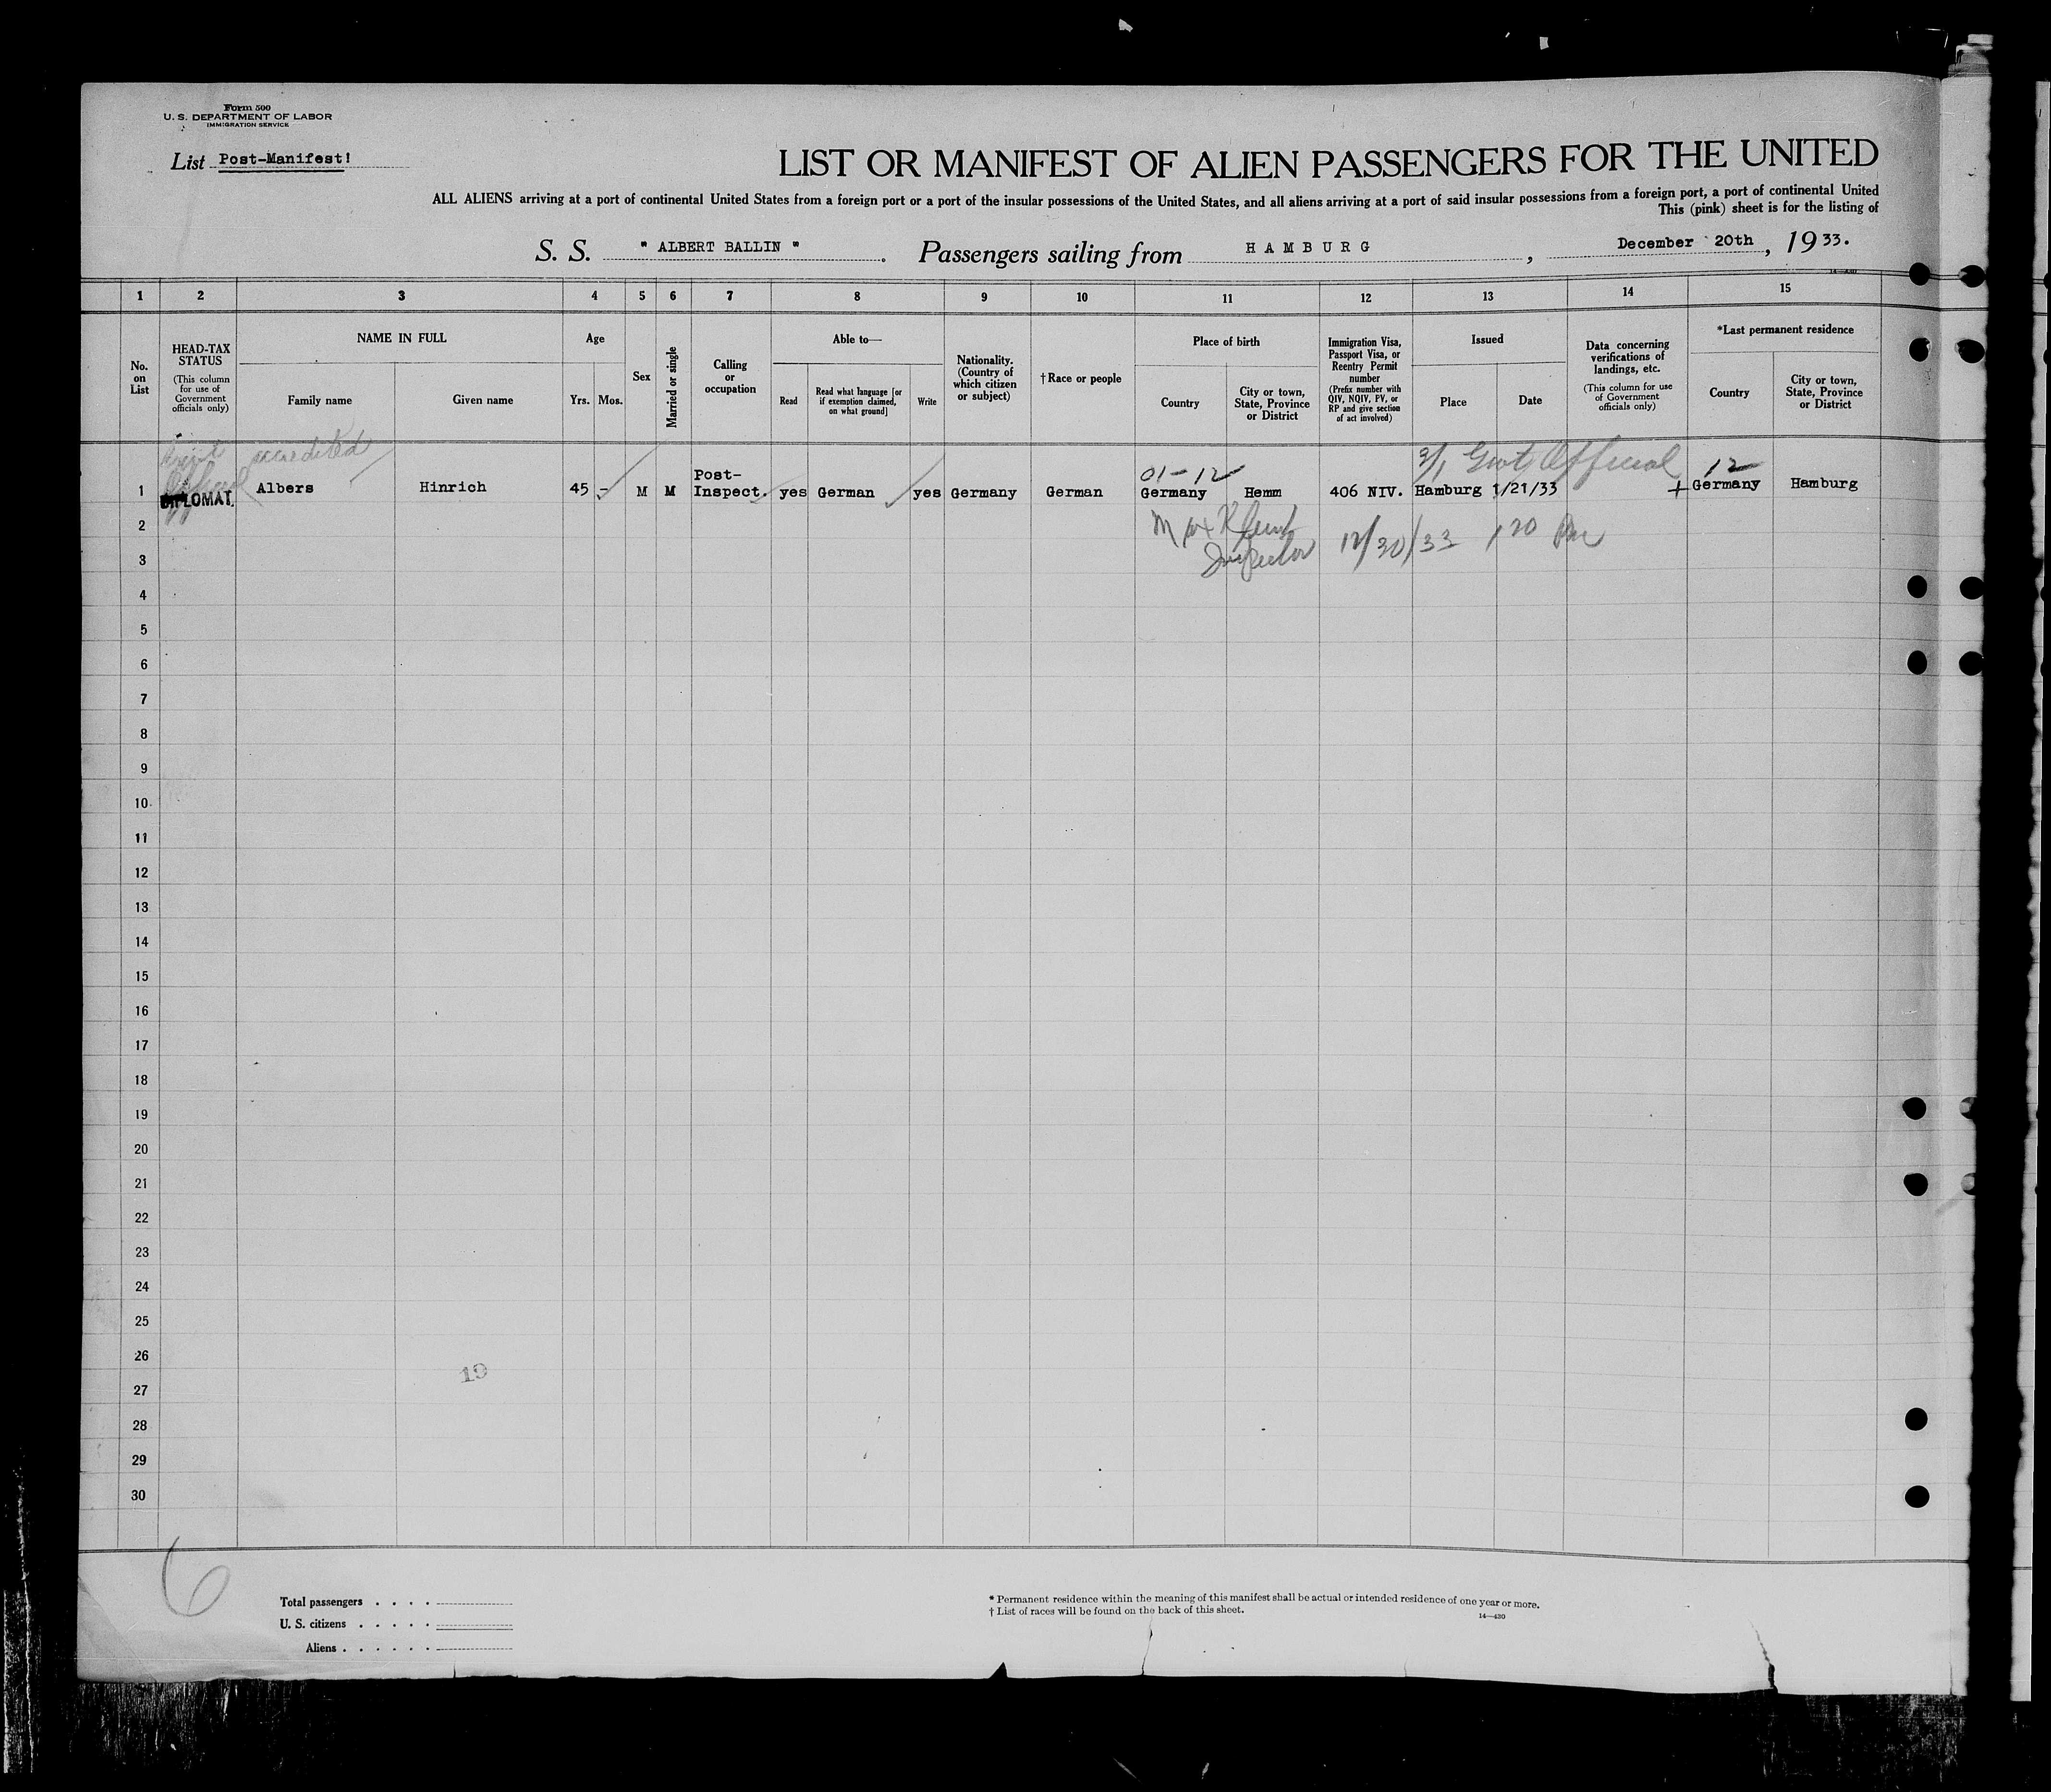 Form 500
U. S. DEPARTMENT OF LABOR
IMMIGRATION SERVICE
List Post-Manifest!
LIST OR MANIFEST OF ALIEN PASSENGERS FOR THE UNITED
ALL ALIENS arriving at a port of continental United States from a foreign port or a port of the insular possessions of the United States, and all aliens arriving at a port of said insular possessions from a foreign port, a port of continental United
This (pink) sheet is for the listing of
S. S. " ALBERT BALLIN ". Passengers sailing from HAMBURG, December 20th, 1933.
14—430
1 2 3 4 5 6 7 8 9 10 11 12 13 14 15
No. on List
HEAD-TAX STATUS
(This column for use of Government officials only)
NAME IN FULL
Family name
Given name
Age
Yrs. Mos.
Sex
Married or single
Calling or occupation
Able to—
Read
Read what language [or if exemption claimed, on what ground]
Write
Nationality. (Country of which citizen or subject)
†Race or people
Place of birth
Country
City or town, State, Province or District
Immigration Visa, Passport Visa, or Reentry Permit number
(Prefix number with QIV, NQIV, PV, or RP and give section of act involved)
Issued
Place
Date
Data concerning verifications of landings, etc.
(This column for use of Government officials only)
*Last permanent residence
Country
City or town, State, Province or District
accredited
01-12
3/1 Govt Official
12
1 DIPLOMAT. Albers Hinrich 45 - M M Post-Inspect. yes German yes Germany German Germany Hemm 406 NIV. Hamburg 1/21/33 + Germany Hamburg
2
Max
Inspector 12/30/33 1 20 Pm
3
4
5
6
7
8
9
10
11
12
13
14
15
16
17
18
19
20
21
22
23
24
25
26
19
27
28
29
30
6
Total passengers . . . .
U. S. citizens . . . . .
Aliens . . . . . .
* Permanent residence within the meaning of this manifest shall be actual or intended residence of one year or more.
† List of races will be found on the back of this sheet.
14—430